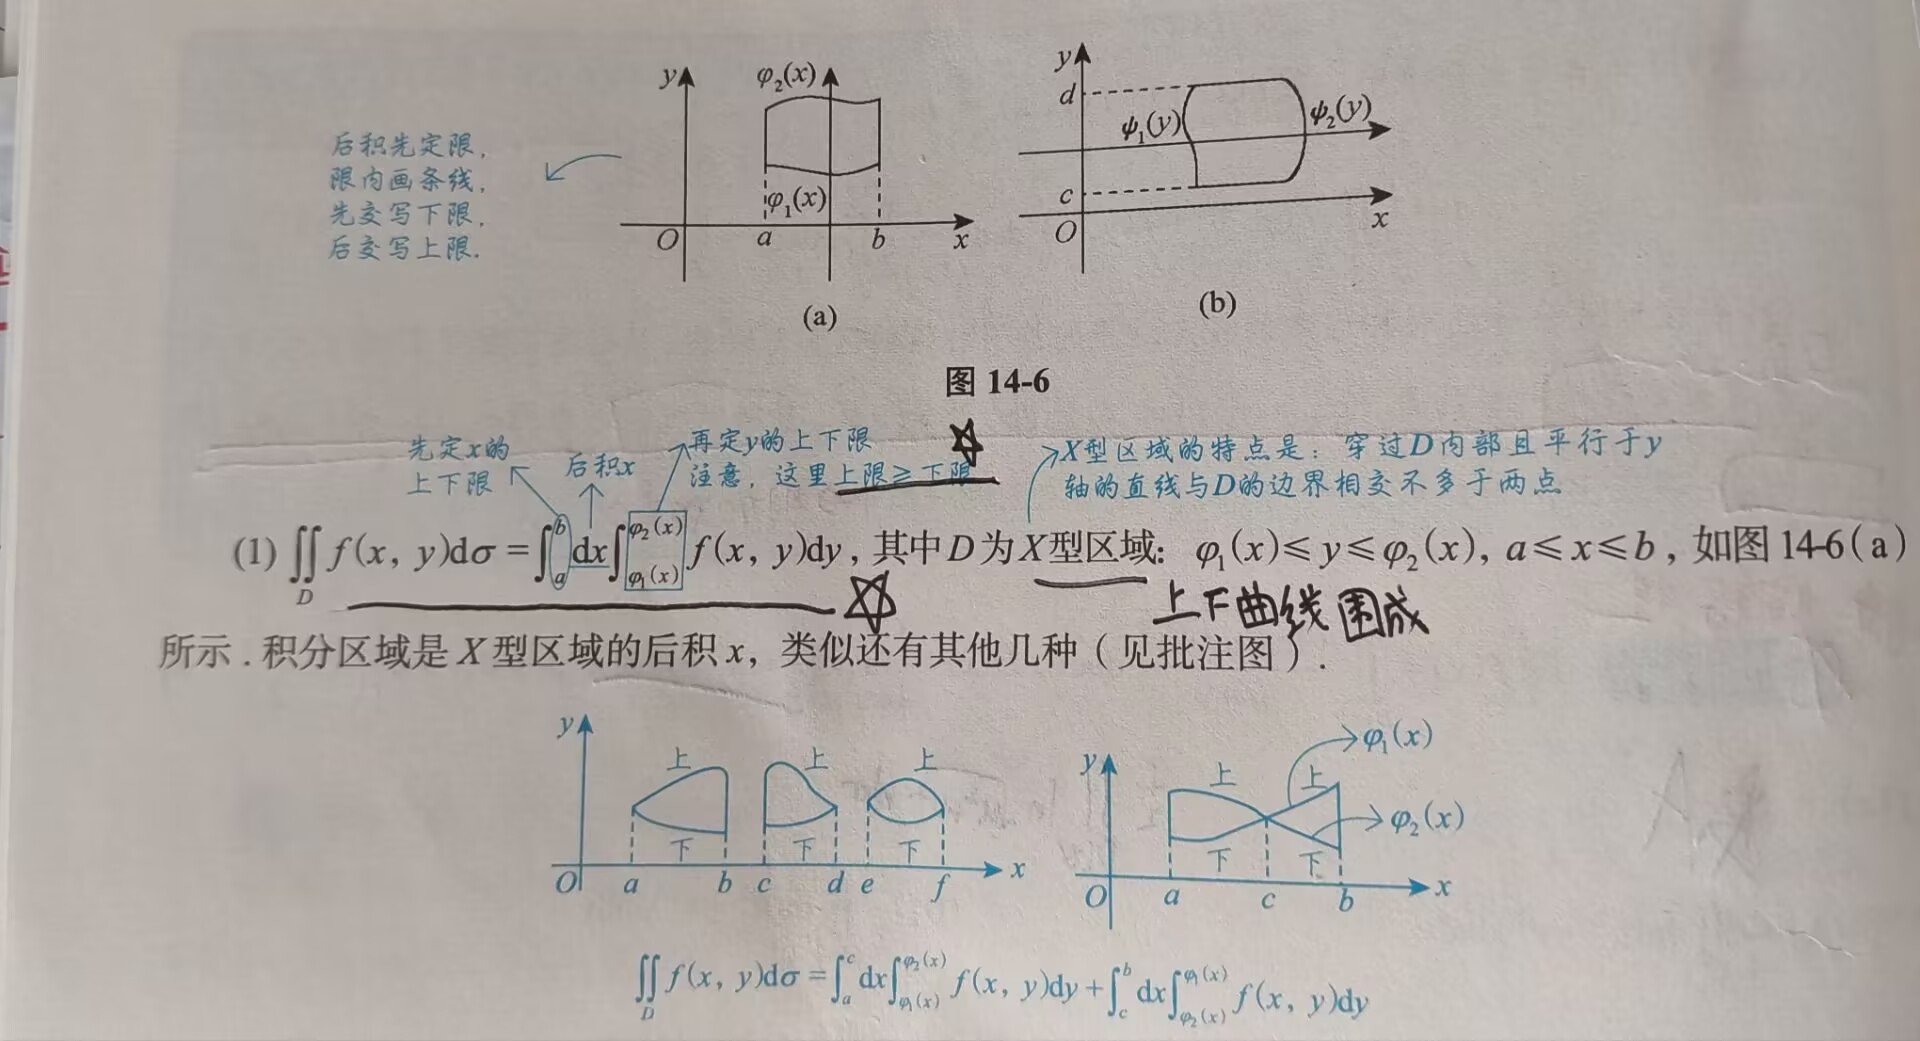 y φ₂(x)
后积先定限，
限内画条线，
先交写下限，
后交写上限.
φ₁(x)
O a b x
(a)
y
d
ψ₁(y) ψ₂(y)
c
O x
(b)
图 14-6
先定x的
上下限
后积x
再定y的上下限
注意，这里上限≥下限
X型区域的特点是：穿过D内部且平行于y
轴的直线与D的边界相交不多于两点
(1) ∬_D f(x, y)dσ = ∫_a^b dx ∫_{φ₁(x)}^{φ₂(x)} f(x, y)dy, 其中 D 为 X 型区域：φ₁(x) ≤ y ≤ φ₂(x), a ≤ x ≤ b, 如图 14-6(a)
上下曲线围成
所示．积分区域是 X 型区域的后积 x，类似还有其他几种（见批注图）．
y
上 上 上
下 下 下
O a b c d e f x
y φ₁(x)
上 上
φ₂(x)
下 下
O a c b x
∬_D f(x, y)dσ = ∫_a^c dx ∫_{φ₁(x)}^{φ₂(x)} f(x, y)dy + ∫_c^b dx ∫_{φ₂(x)}^{φ₁(x)} f(x, y)dy